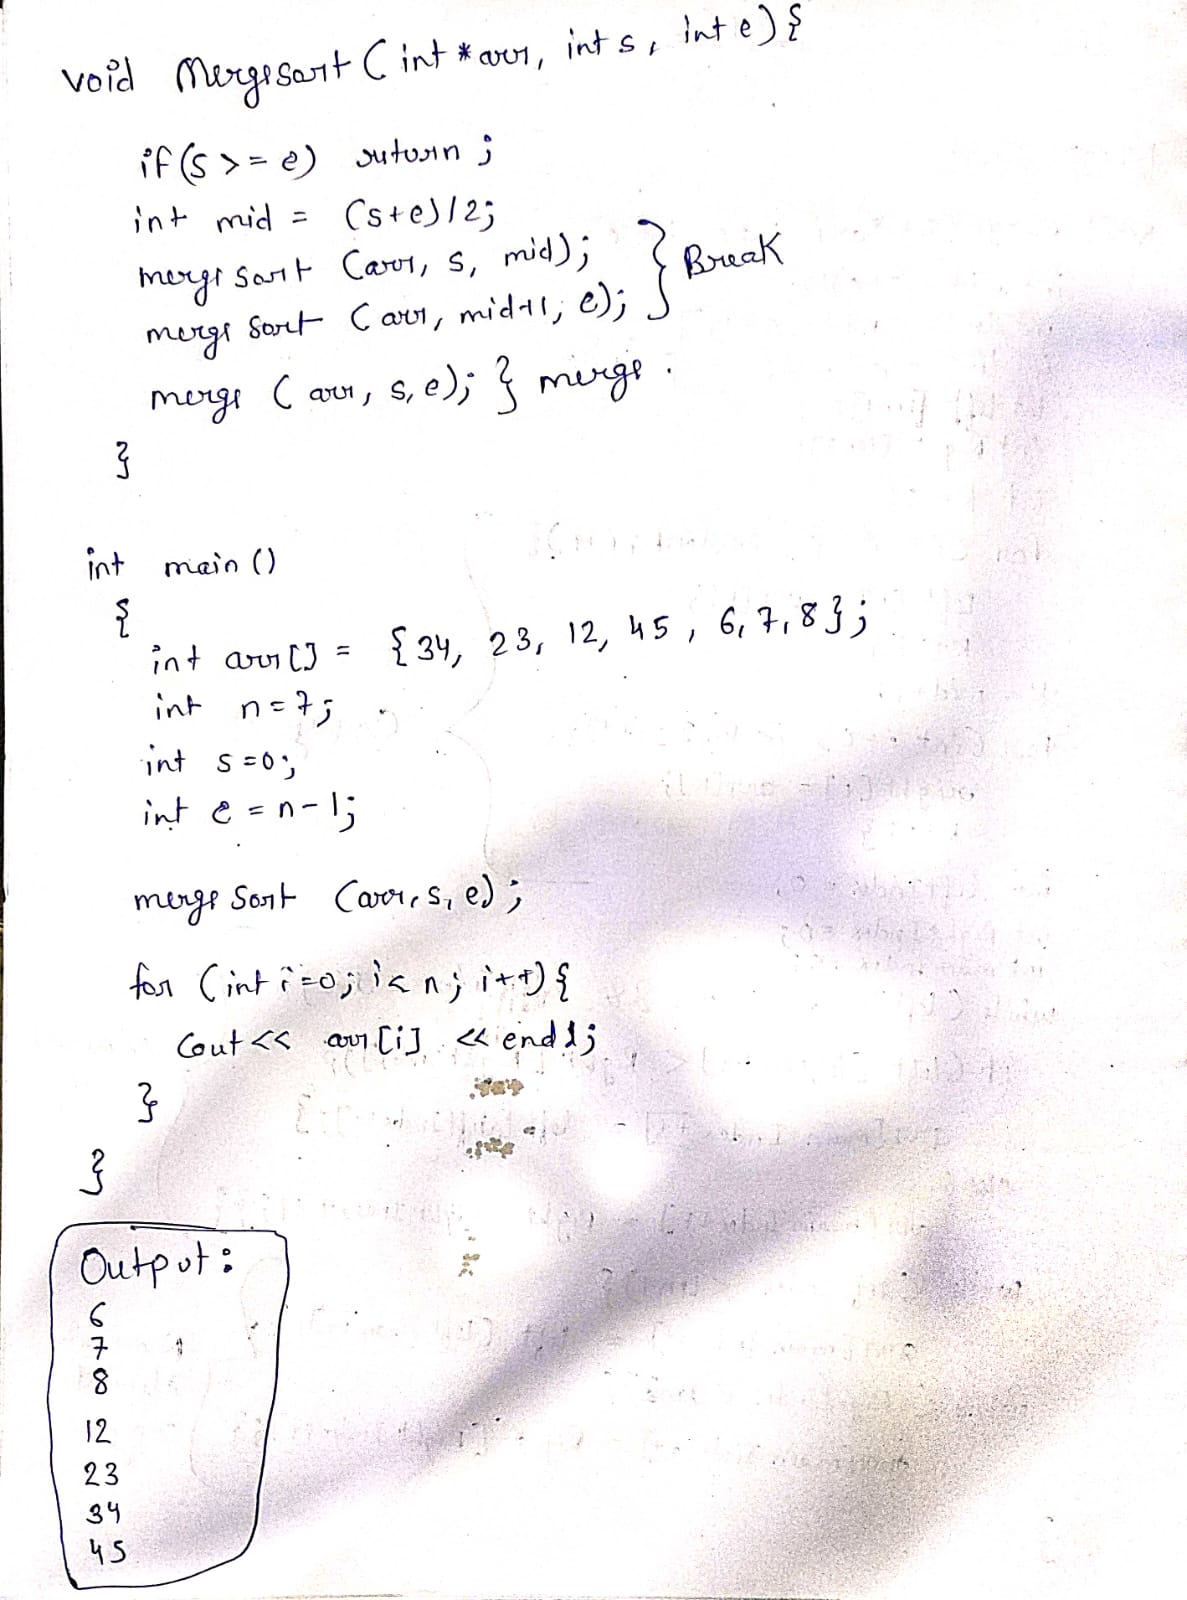 void Mergesort (int *arr, int s, int e) {
if (s >= e) return ;
int mid = (s+e)/2;
merge sort (arr, s, mid);
merge sort (arr, mid+1, e); } Break
merge (arr, s, e); } merge .
}
int main ()
{
int arr [] = {34, 23, 12, 45 , 6, 7, 8};
int n = 7;
int s = 0;
int e = n - 1;
merge Sort (arr, s, e);
for (int i=0; i < n; i++) {
Cout << arr [i] << endl;
}
}
Output :
6
7
8
12
23
34
45